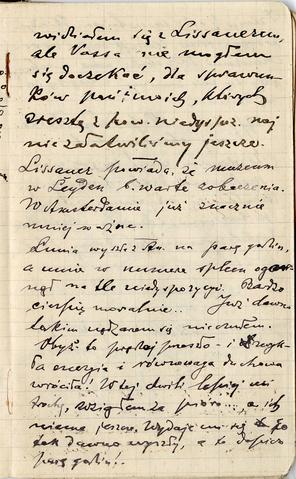 widziałem się z Lissauerem,
ale Vossa nie mogłem
się doczekać, dla sprawun-
ków pani i moich, których
zresztą z pow. niedyspoz. naj
nie załatwiliśmy jeszcze.
Lissauer powiada, że muzeum
w Leyden b. warte zobaczenia.
W Amsterdamie już znacznie
mniej ważne.
Lunia wyszła z An. na parę godzin,
a mnie w numerze spleen ogar-
nął na tle niedyspozycji. Bardzo
cierpię moralnie... Już dawno
takim nędzarzem się nie czułem.
Obyż to prędzej przeszło - i
energia i równowaga duchowa
wróciła! W tej chwili, lepiej mi
trochę, wziąłem za pióro... a ich
niema jeszcze. Wydaje mi się że
tak dawno wyszły, a to dopiero
parę godzin!..